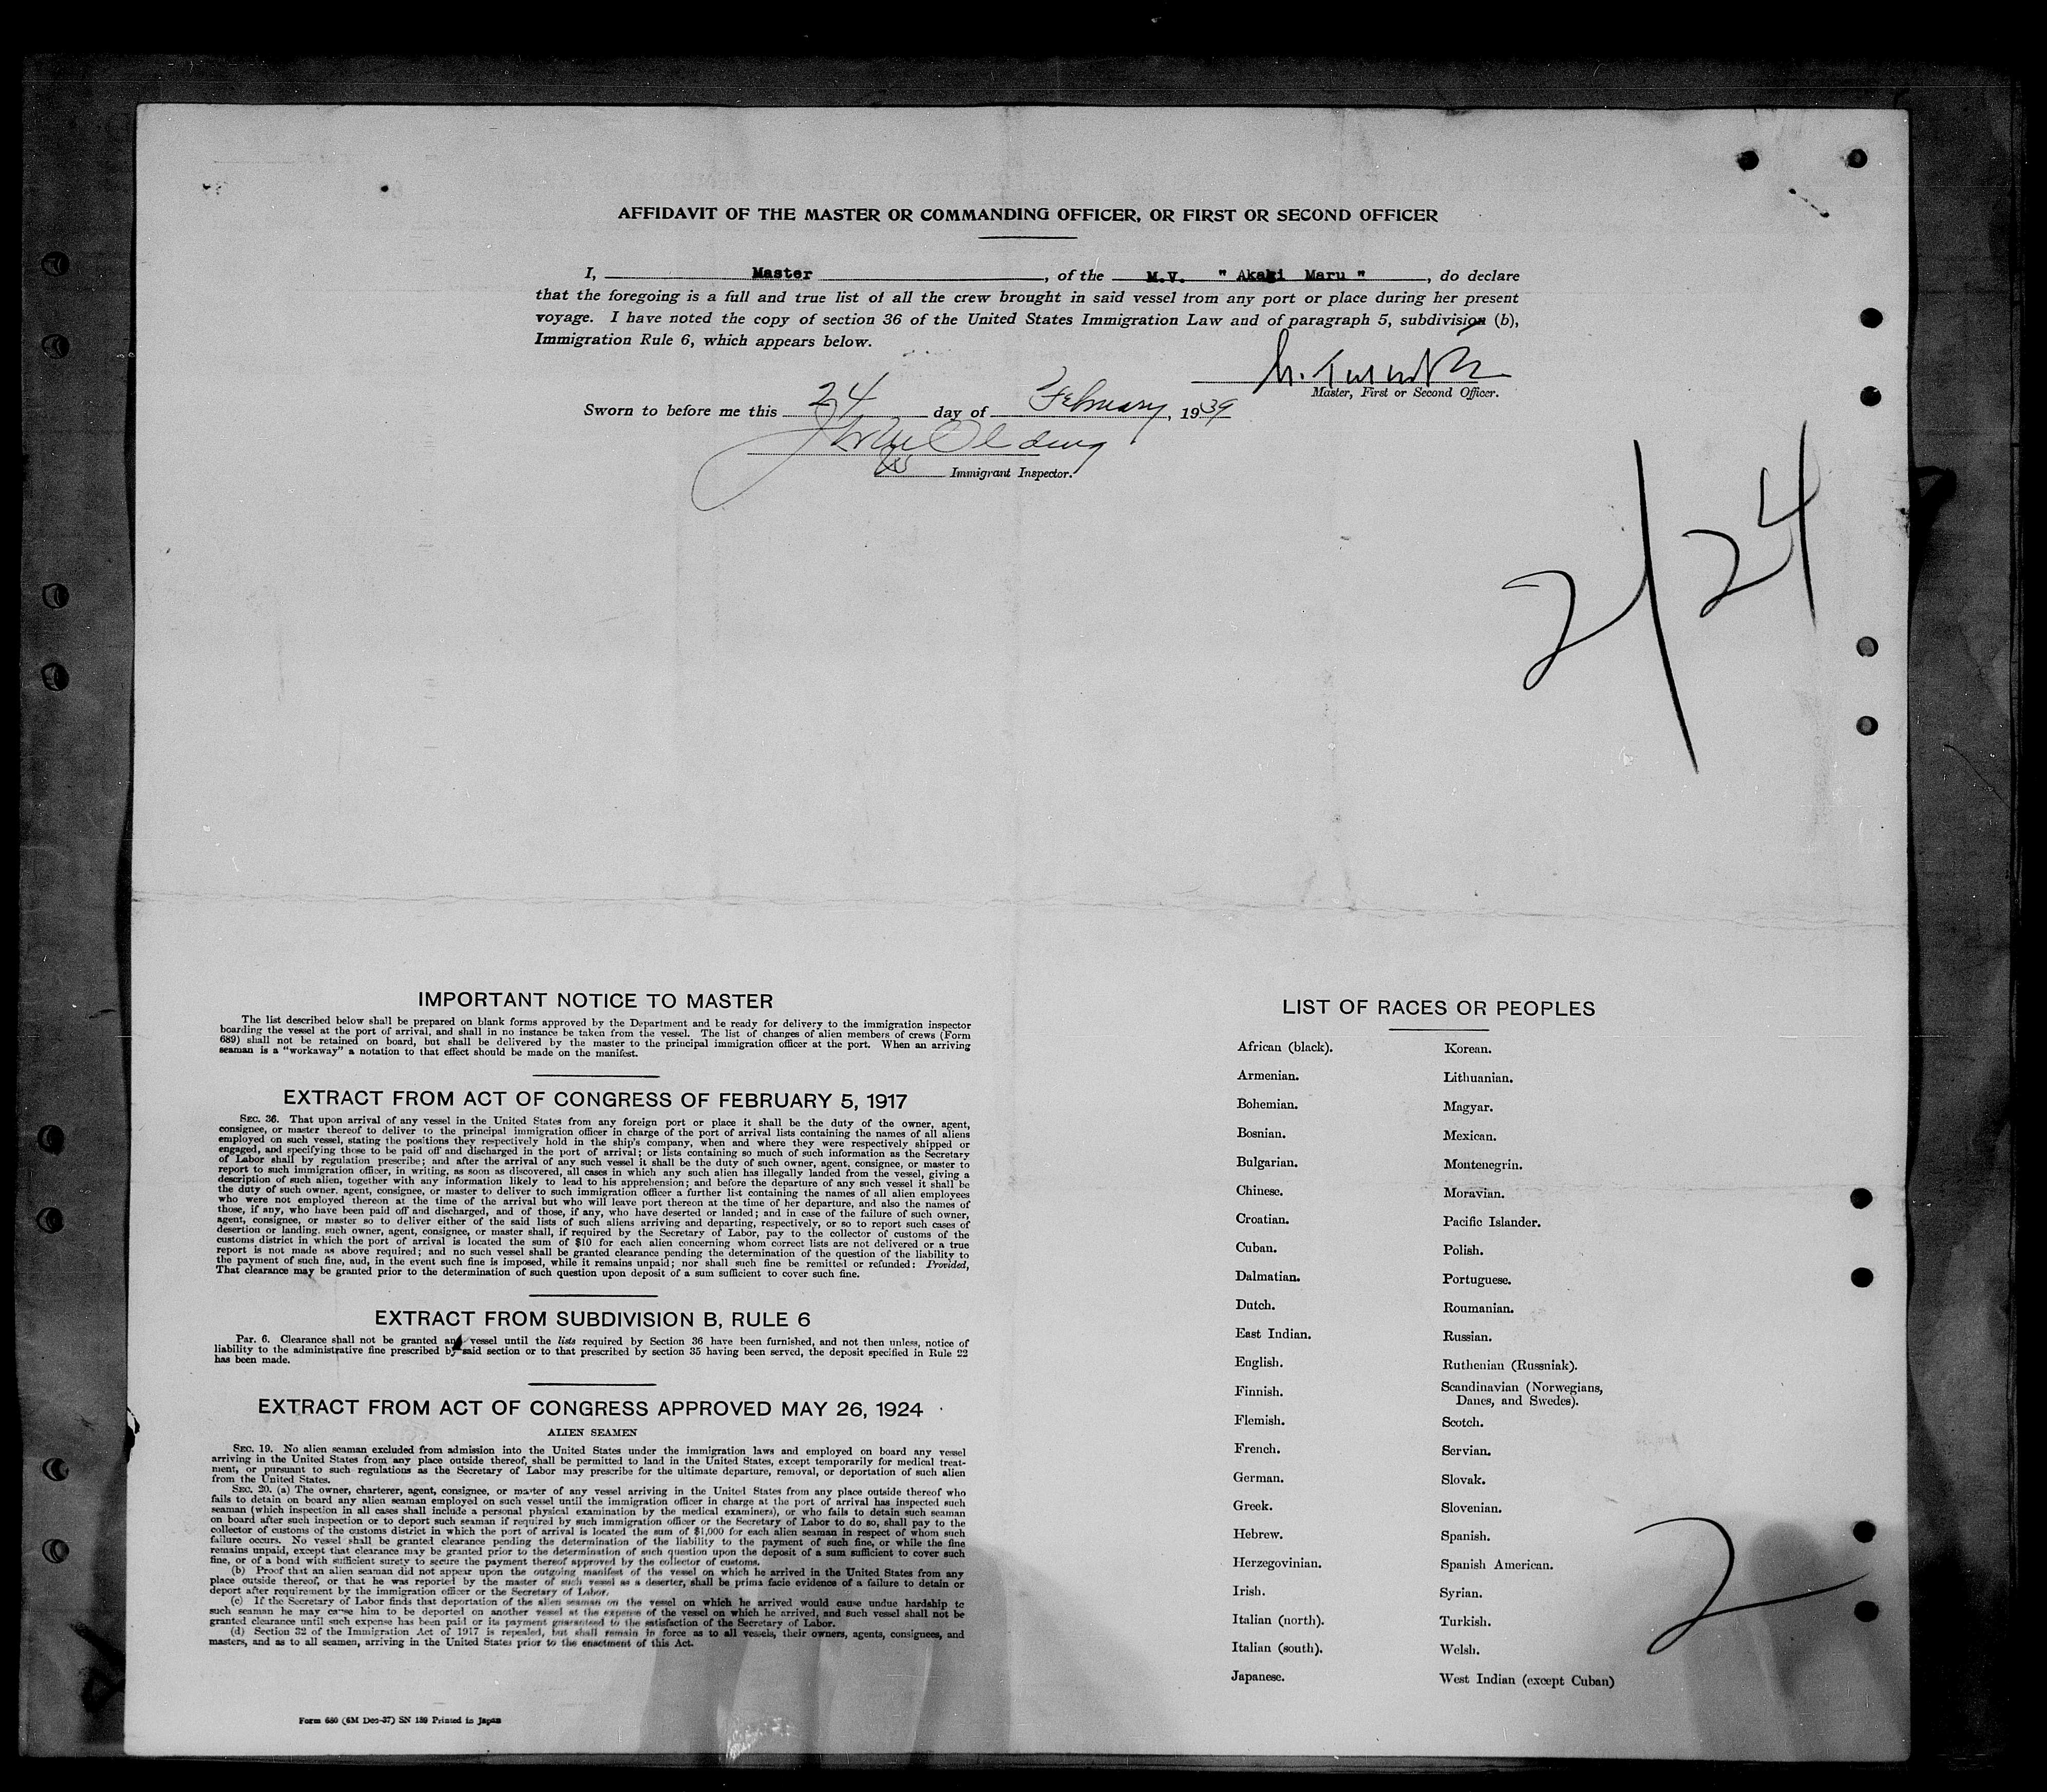 AFFIDAVIT OF THE MASTER OR COMMANDING OFFICER, OR FIRST OR SECOND OFFICER
I, Master, of the M.V. " Akagi Maru ", do declare
that the foregoing is a full and true list of all the crew brought in said vessel from any port or place during her present
voyage. I have noted the copy of section 36 of the United States Immigration Law and of paragraph 5, subdivision (b),
Immigration Rule 6, which appears below.
Master, First or Second Officer.
Sworn to before me this 24 day of February, 1939
Immigrant Inspector.
2/24
IMPORTANT NOTICE TO MASTER
The list described below shall be prepared on blank forms approved by the Department and be ready for delivery to the immigration inspector
boarding the vessel at the port of arrival, and shall in no instance be taken from the vessel. The list of changes of alien members of crews (Form
689) shall not be retained on board, but shall be delivered by the master to the principal immigration officer at the port. When an arriving
seaman is a "workaway" a notation to that effect should be made on the manifest.
EXTRACT FROM ACT OF CONGRESS OF FEBRUARY 5, 1917
SEC. 36. That upon arrival of any vessel in the United States from any foreign port or place it shall be the duty of the owner, agent,
consignee, or master thereof to deliver to the principal immigration officer in charge of the port of arrival lists containing the names of all aliens
employed on such vessel, stating the positions they respectively hold in the ship's company, when and where they were respectively shipped or
engaged, and specifying those to be paid off and discharged in the port of arrival; or lists containing so much of such information as the Secretary
of Labor shall by regulation prescribe; and after the arrival of any such vessel it shall be the duty of such owner, agent, consignee, or master to
report to such immigration officer, in writing, as soon as discovered, all cases in which any such alien has illegally landed from the vessel, giving a
description of such alien, together with any information likely to lead to his apprehension; and before the departure of any such vessel it shall be
the duty of such owner. agent, consignee, or master to deliver to such immigration officer a further list containing the names of all alien employees
who were not employed thereon at the time of the arrival but who will leave port thereon at the time of her departure, and also the names of
those, if any, who have been paid off and discharged, and of those, if any, who have deserted or landed; and in case of the failure of such owner,
agent, consignee, or master so to deliver either of the said lists of such aliens arriving and departing, respectively, or so to report such cases of
desertion or landing, such owner, agent, consignee, or master shall, if required by the Secretary of Labor, pay to the collector of customs of the
customs district in which the port of arrival is located the sum of $10 for each alien concerning whom correct lists are not delivered or a true
report is not made as above required; and no such vessel shall be granted clearance pending the determination of the question of the liability to
the payment of such fine, aud, in the event such fine is imposed, while it remains unpaid; nor shall such fine be remitted or refunded: Provided,
That clearance may be granted prior to the determination of such question upon deposit of a sum sufficient to cover such fine.
EXTRACT FROM SUBDIVISION B, RULE 6
Par. 6. Clearance shall not be granted any vessel until the lists required by Section 36 have been furnished, and not then unless, notice of
liability to the administrative fine prescribed by said section or to that prescribed by section 35 having been served, the deposit specified in Rule 22
has been made.
EXTRACT FROM ACT OF CONGRESS APPROVED MAY 26, 1924
ALIEN SEAMEN
SEC. 19. No alien seaman excluded from admission into the United States under the immigration laws and employed on board any vessel
arriving in the United States from any place outside thereof, shall be permitted to land in the United States, except temporarily for medical treat-
ment, or pursuant to such regulations as the Secretary of Labor may prescribe for the ultimate departure, removal, or deportation of such alien
from the United States.
SEC. 20. (a) The owner, charterer, agent, consignee, or master of any vessel arriving in the United States from any place outside thereof who
fails to detain on board any alien seaman employed on such vessel until the immigration officer in charge at the port of arrival has inspected such
seaman (which inspection in all cases shall include a personal physical examination by the medical examiners), or who fails to detain such seaman
on board after such inspection or to deport such seaman if required by such immigration officer or the Secretary of Labor to do so, shall pay to the
collector of customs of the customs district in which the port of arrival is located the sum of $1,000 for each alien seaman in respect of whom such
failure occurs. No vessel shall be granted clearance pending the determination of the liability to the payment of such fine, or while the fine
remains unpaid, except that clearance may be granted prior to the determination of such question upon the deposit of a sum sufficient to cover such
fine, or of a bond with sufficient surety to secure the payment thereof approved by the collector of customs.
(b) Proof that an alien seaman did not appear upon the outgoing manifest of the vessel on which he arrived in the United States from any
place outside thereof, or that he was reported by the master of such vessel as a deserter, shall be prima facie evidence of a failure to detain or
deport after requirement by the immigration officer or the Secretary of Labor.
(c) If the Secretary of Labor finds that deportation of the alien seaman on the vessel on which he arrived would cause undue hardship to
such seaman he may cause him to be deported on another vessel at the expense of the vessel on which he arrived, and such vessel shall not be
granted clearance until such expense has been paid or its payment guaranteed to the satisfaction of the Secretary of Labor.
(d) Section 32 of the Immigration Act of 1917 is repealed, but shall remain in force as to all vessels, their owners, agents, consignees, and
masters, and as to all seamen, arriving in the United States prior to the enactment of this Act.
Form 680 (6M Dec-37) SN 189 Printed in Japan
LIST OF RACES OR PEOPLES
African (black). Korean.
Armenian. Lithuanian.
Bohemian. Magyar.
Bosnian. Mexican.
Bulgarian. Montenegrin.
Chinese. Moravian.
Croatian. Pacific Islander.
Cuban. Polish.
Dalmatian. Portuguese.
Dutch. Roumanian.
East Indian. Russian.
English. Ruthenian (Russniak).
Finnish. Scandinavian (Norwegians,
Danes, and Swedes).
Flemish. Scotch.
French. Servian.
German. Slovak.
Greek. Slovenian.
Hebrew. Spanish.
Herzegovinian. Spanish American.
Irish. Syrian.
Italian (north). Turkish.
Italian (south). Welsh.
Japanese. West Indian (except Cuban)
2